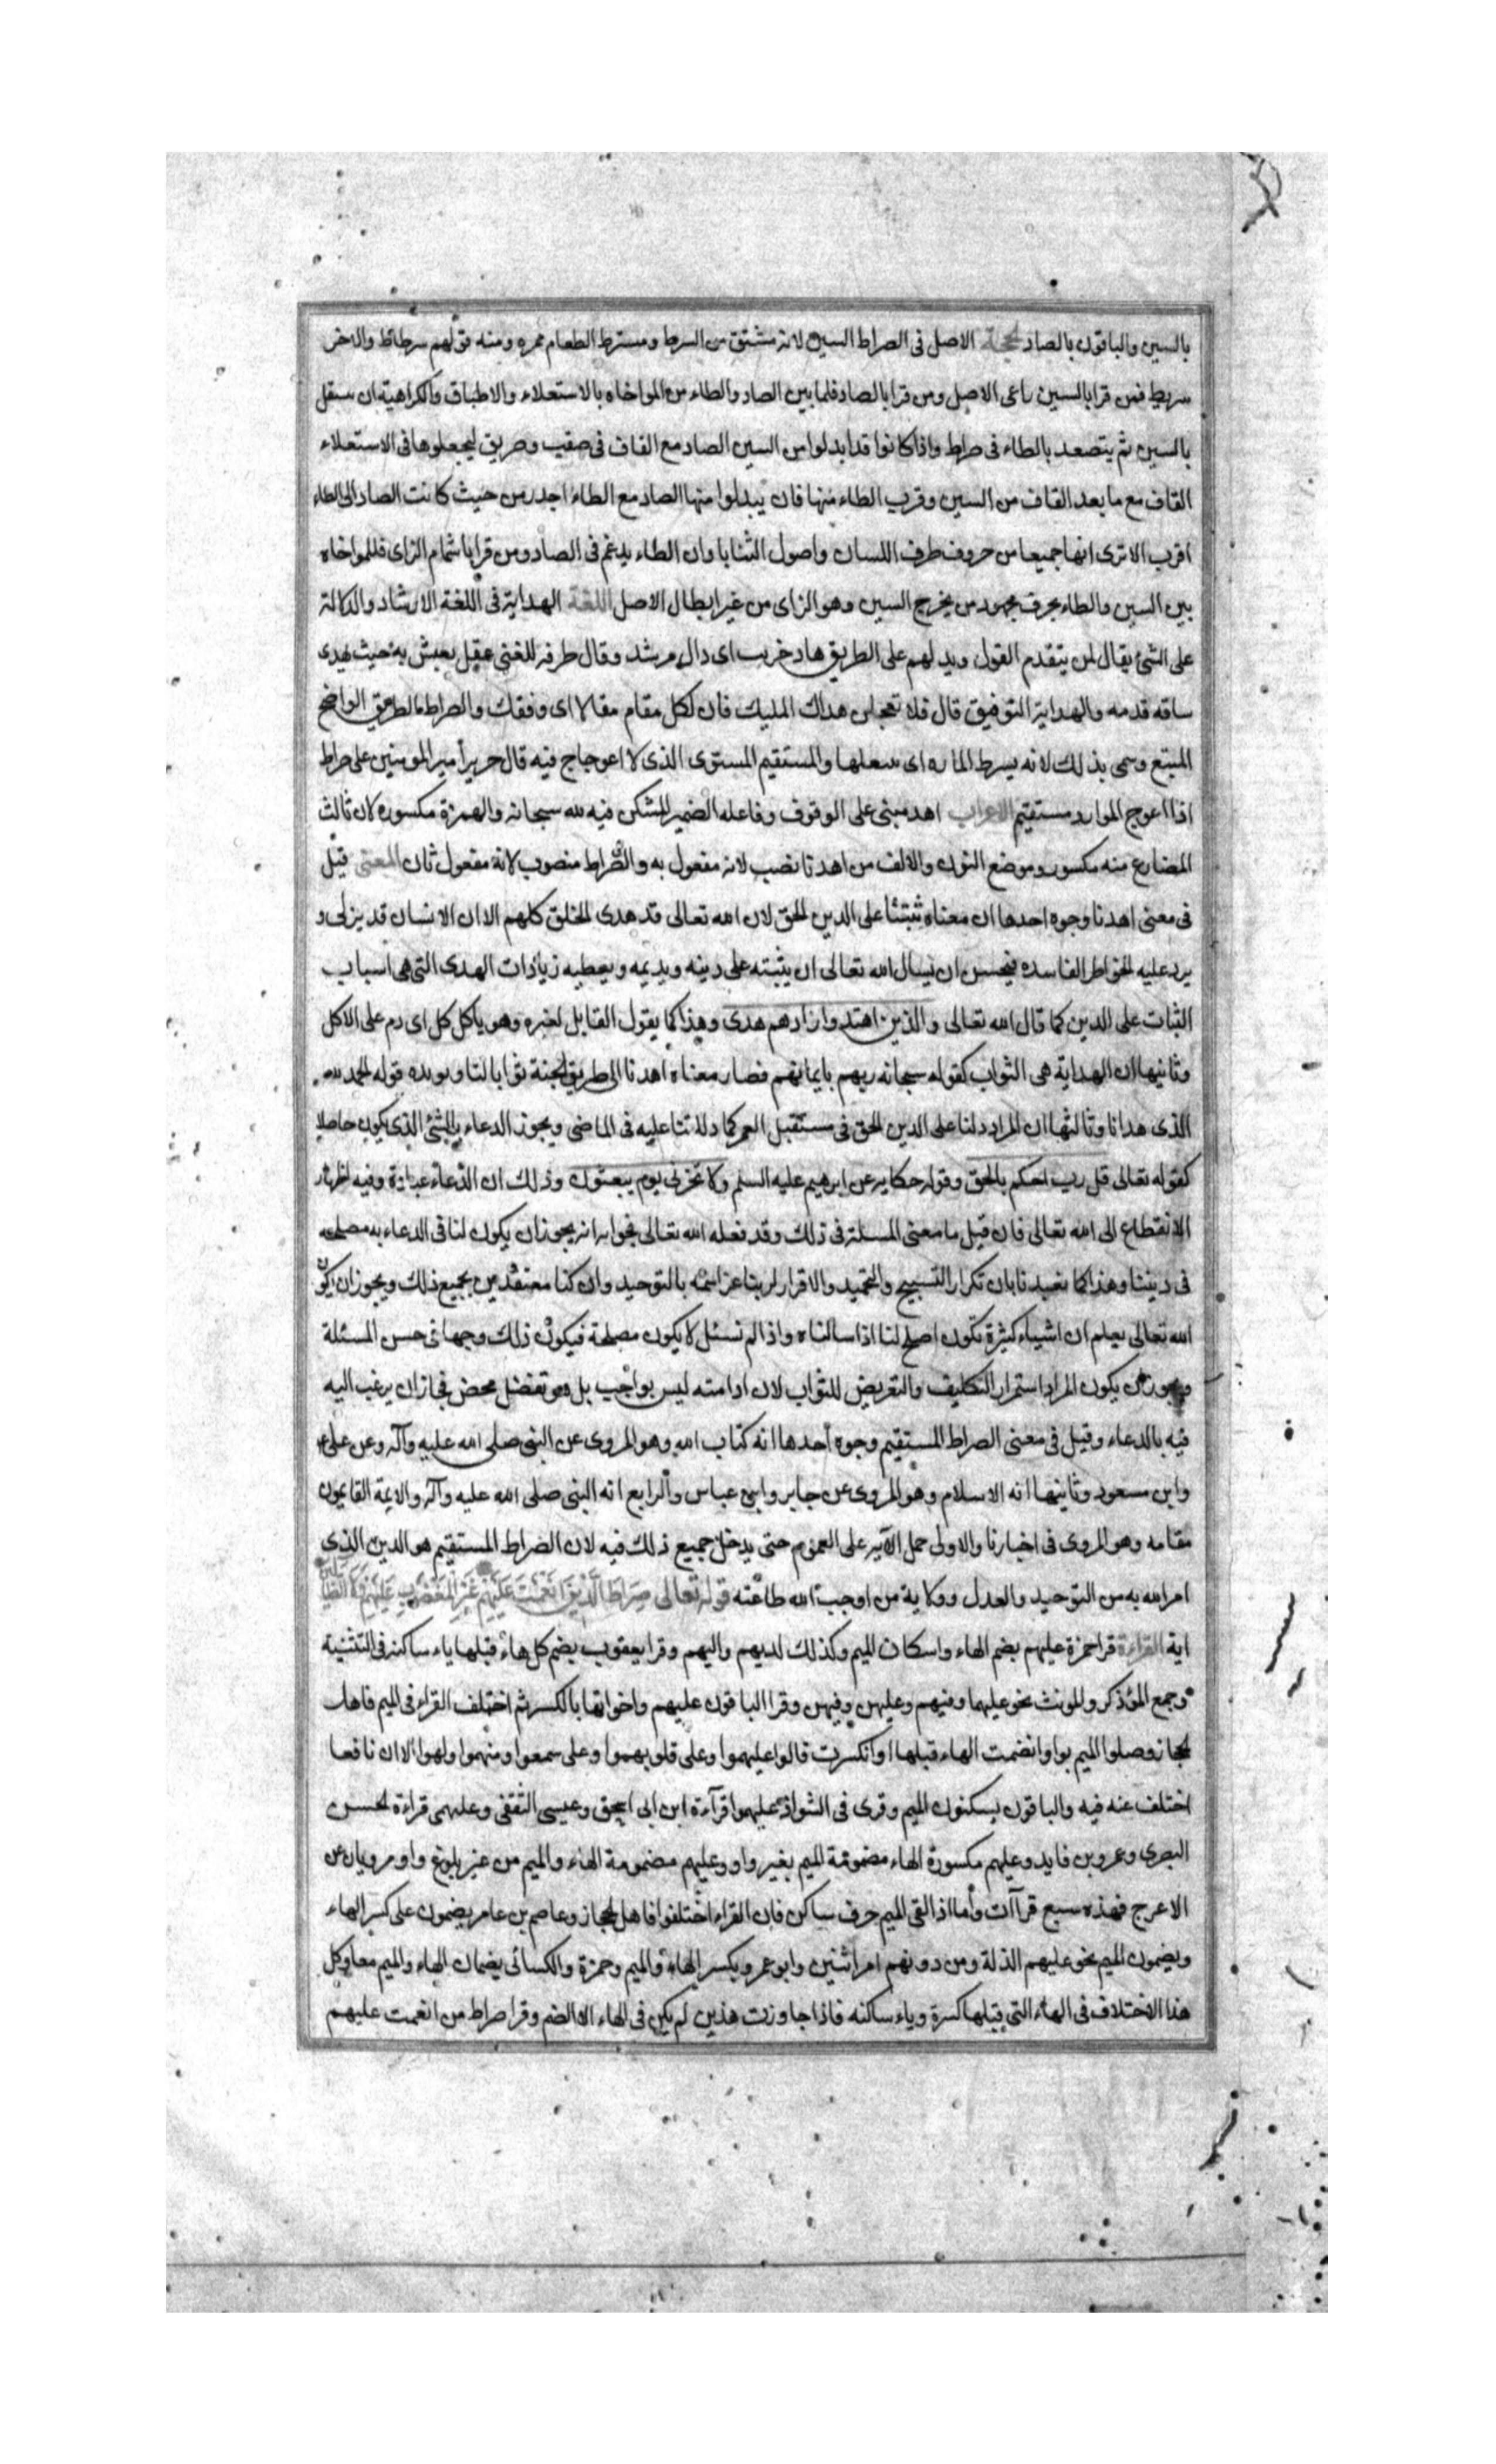 بالسين والباقون بالصاد الحجة الاصل فى الصراط السين لانه مشتق من السرط ومسترط الطعام ممره ومنه قولهم سرطاط والاخر
سريط فمن قرا بالسين راعى الاصل ومن قرا بالصاد فلما بين الصاد والطاء من المواخاه بالاستعلاء والاطباق والكراهية ان يتسفل
بالسين ثم يتصعد بالطاء فى صراط واذا كانوا قد ابدلوا من السين الصاد مع القاف فى صقب وصويق ليجعلوها فى الاستعلاء
القاف مع ما بعد القاف من السين وقرب الطاء منها فان يبدلوا منها الصاد مع الطاء اجدر من حيث كانت الصاد الى الطاء
اقرب الا ترى انها جميعا من حروف طرف اللسان واصول الثنايا وان الطاء يدغم فى الصاد ومن قرا باشمام الزاى فللمواخاه
بين السين والطاء بحرف مجهور من مخرج السين وهو الزاى من غير ابطال الاصل اللغة الهداية فى اللغة الارشاد والدلالة
على الشئ يقال لمن يتقدم القول ويدلهم على الطريق هاد خريت اى دال مرشد وقال طرفه للفتى عقل يعيش به حيث تهدى
ساقه قدمه والهداية التوفيق قال فلا تعجلن هداك المليك فان لكل مقام مقالا اى وفقك والصراط الطريق الواضح
المتبع وسمى بذلك لانه يسرط الماره اى يبتلعها والمستقيم المستوى الذى لا اعوجاج فيه قال جرير امير المومنين على صراط
اذا اعوج الموارد مستقيم الاعراب اهد مبنى على الوقوف وفاعله الضمير المستكن فيه لله سبحانه والهمزة مكسوره لان ثالث
المضارع منه مكسور وموضع النون والالف من اهدنا نصب لانه مفعول به والصراط منصوب لانه مفعول ثان المعنى قيل
فى معنى اهدنا وجوه احدها ان معناه ثبتنا على الدين الحق لان الله تعالى قد هدى الخلق كلهم الا ان الانسان قد يزل و
يرد عليه الخواطر الفاسده فيحسن ان يسال الله تعالى ان يثبته على دينه ويديمه ويعطيه زيادات الهدى التى هى اسباب
الثبات على الدين كما قال الله تعالى والذين اهتدوا زادهم هدى وهذا كما يقول القايل لغيره وهو ياكل كل اى دم على الاكل
وثانيها ان الهداية هى الثواب كقوله سبحانه ربهم بايمانهم فصار معناه اهدنا الى طريق الجنة ثوابا لنا ويويده قوله الحمد لله
الذى هدانا وثالثها ان المراد دلنا على الدين الحق فى مستقبل العمر كما دللتنا عليه فى الماضى ويجوز الدعاء بالشئ الذى يكون حاصلا
كقوله تعالى قل رب احكم بالحق وقوله حكايه عن ابرهيم عليه السلم ولا تخزنى يوم يبعثون وذلك ان الدعاء عبادة وفيه اظهار
الانقطاع الى الله تعالى فان قيل ما معنى المسئلة فى ذلك وقد فعله الله تعالى فجوابه انه يجوز ان يكون لنا فى الدعاء به مصلحه
فى ديننا وهذا كما تعبدنا بان تكرار التسبيح والتحميد والاقرار لربنا عز اسمه بالتوحيد وان كنا معتقدين بجميع ذلك ويجوز ان يكون
الله تعالى يعلم ان اشياء كثيرة تكون اصلح لنا اذا سالناه واذا لم نسئل لا يكون مصلحة فيكون ذلك وجها فى حسن المسئلة
ويجوز ان يكون المراد استمرار التكليف والتعريض للثواب لان ادامته ليس بواجب بل هو تفضل محض فجاز ان يرغب اليه
فيه بالدعاء وقيل فى معنى الصراط المستقيم وجوه احدها انه كتاب الله وهو المروى عن النبى صلى الله عليه وآله وعن على ع
وابن مسعود وثانيها انه الاسلام وهو المروى عن جابر وابن عباس والرابع انه النبى صلى الله عليه وآله والايمة القايمون
مقامه وهو المروى فى اخبارنا والاولى حمل الآيه على العموم حتى يدخل جميع ذلك فيه لان الصراط المستقيم هو الدين الذى
امر الله به من التوحيد والعدل وولاية من اوجب الله طاعته قوله تعالى صِرَاطَ الَّذِينَ اَنْعَمْتَ عَلَيْهِمْ غَيْرِ الْمَغْضُوبِ عَلَيْهِمْ وَلَا الضَّالِّينَ
اية القراءة قرا حمزة عليهم بضم الهاء واسكان الميم وكذلك لديهم واليهم وقرا يعقوب بضم كل هاء قبلها ياء ساكنه فى التثنية
وجمع المؤذكر وللونث نحو عليهما وفيهم وعليهن وفيهن وقرا الباقون عليهم واخواتها بالكسر ثم اختلف القراء فى الميم فاهل
الحجاز وصلوا الميم بواو انضمت الهاء قبلها او انكسرت قالوا عليهموا وعلى قلوبهموا وعلى سمعهموا ومنهموا ولهموا الا ان نافعا
اختلف عنه فيه والباقون يسكنون الميم وقرى فى الشواذ عليهموا قرآءة ابن ابى اسحق وعيسى الثقفى وعليهمى قراءة الحسن
البصرى وعمرو بن فايد وعليهم مكسورة الهاء مضمومة الميم بغير واو وعليهم مضمومة الهاء والميم من غير بلوغ واو مرويان عن
الاعرج فهذه سبع قراآت واما اذا لقى الميم حرف ساكن فان القراء اختلفوا فاهل الحجاز وعاصم بن عامر يضمون على كسر الهاء
ويضمون الميم نحو عليهم الذلة ومن دونهم امراتين وابو عمرو يكسر الهاء والميم وحمزة والكسائى يضمان الهاء والميم معا وكل
هذا الاختلاف فى الهاء التى قبلها كسرة وياء ساكنه فاذا جاوزت هذين لم يكن فى الهاء الا الضم وقرا صراط من انعمت عليهم